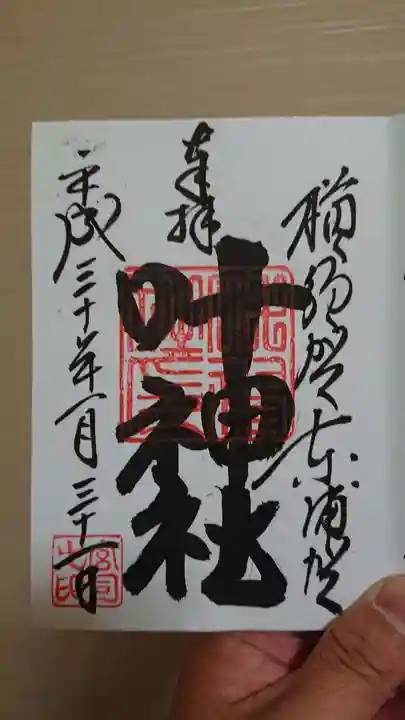 横須賀東浦賀
奉拝
叶神社
平成三十年一月三十一日
宮司之印